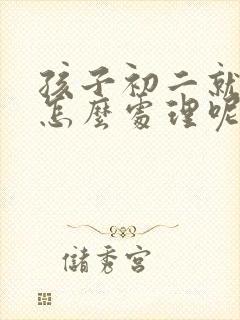 孩子初二就
怎麼處理呢
儲秀宮